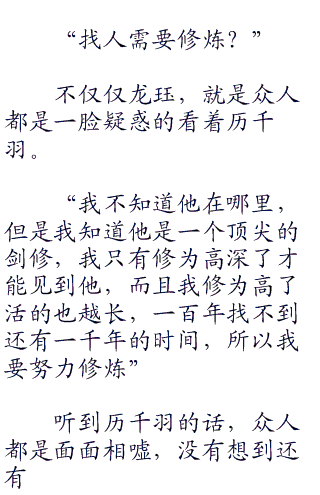 “找人需要修炼？”
不仅仅龙珏，就是众人
都是一脸疑惑的看着历千
羽。
“我不知道他在哪里，
但是我知道他是一个顶尖的
剑修，我只有修为高深了才
能见到他，而且我修为高了
活的也越长，一百年找不到
还有一千年的时间，所以我
要努力修炼”
听到历千羽的话，众人
都是面面相嘘，没有想到还
有